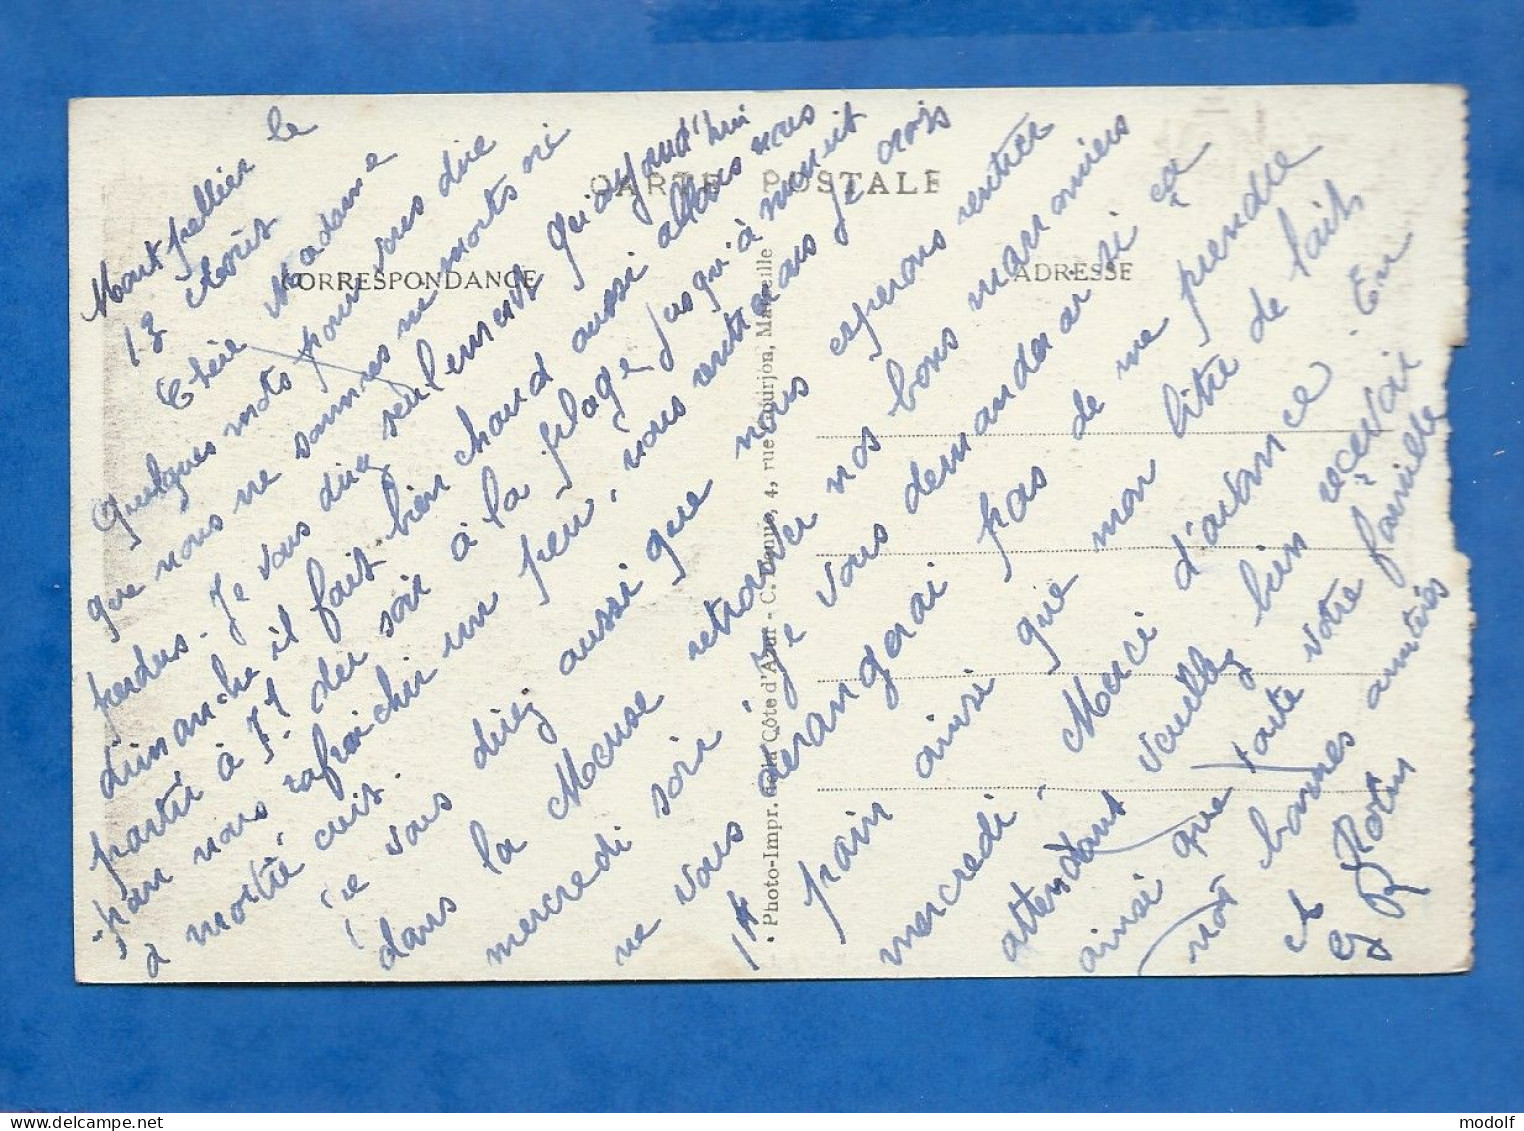 CARTE POSTALE
CORRESPONDANCE
ADRESSE
Montpellier le
13 Août
Chère Madame
Quelques mots pour vous dire
que nous ne sommes ni morts ni
perdus. Je vous direz seulement qu'aujourd'hui
dimanche il fait bien chaud aussi allons nous
partir à 5h du soir à la plage jusqu'à minuit
pour nous rafraichir un peu, nous rentrerons je crois
à moitié cuit.
Je vous direz aussi que nous esperons rentrer
dans la Meuse retrouver nos bons maroniers
mercredi soir je vous demanderai si ça
ne vous derangerai pas de me prendre
1 pain ainsi que mon litre de lait,
mercredi, Merci d'avance. En
attendant veuillez bien recevoir
ainsi que toute votre famille
nos bonnes amitiés
G Robin
• Photo-Impr. de la Côte d'Azur - 4, rue Gourjon, Marseille
modolf